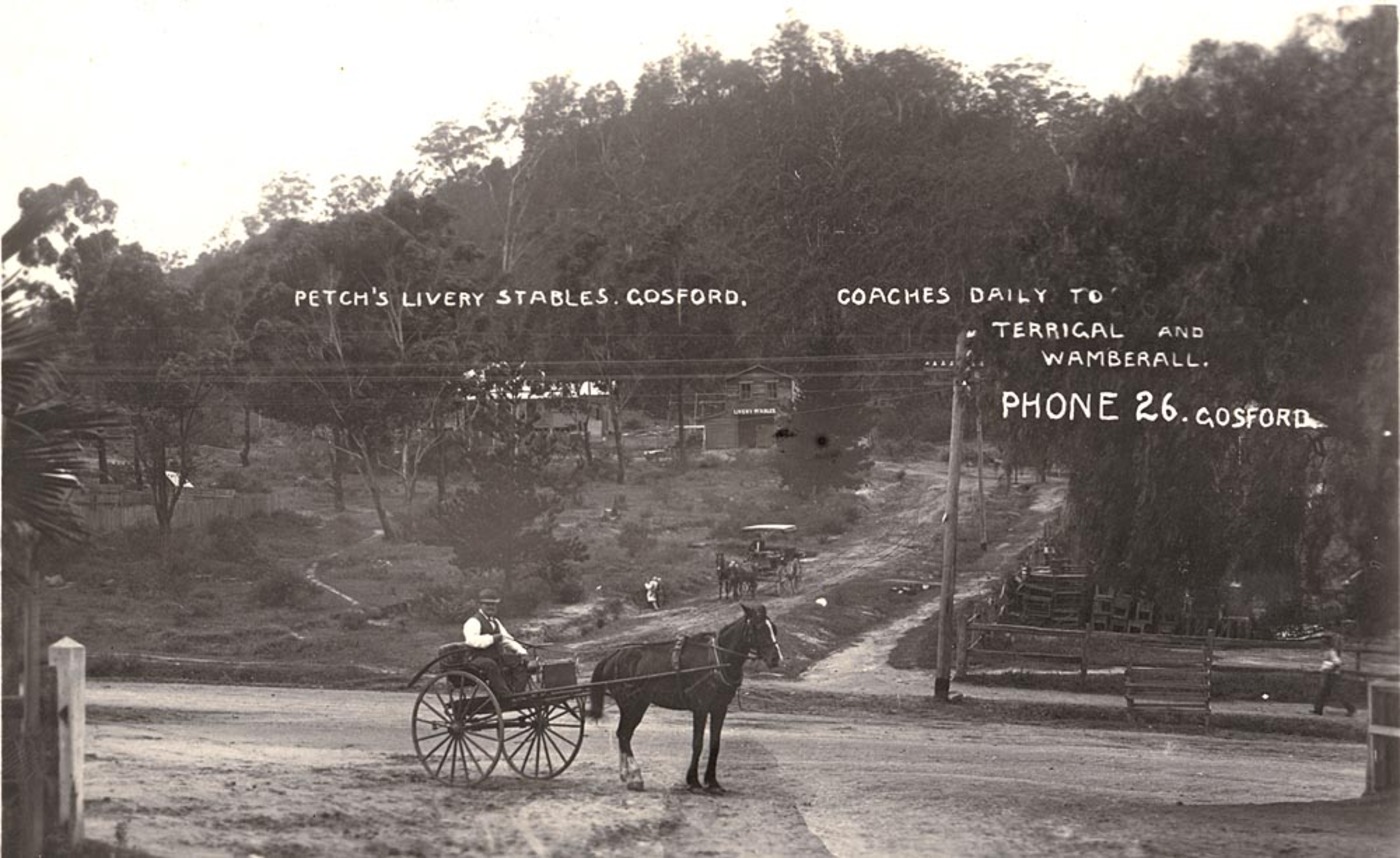 PETCH'S LIVERY STABLES. GOSFORD.
COACHES DAILY TO
TERRIGAL AND
WAMBERALL.
PHONE 26. GOSFORD
LIVERY STABLES